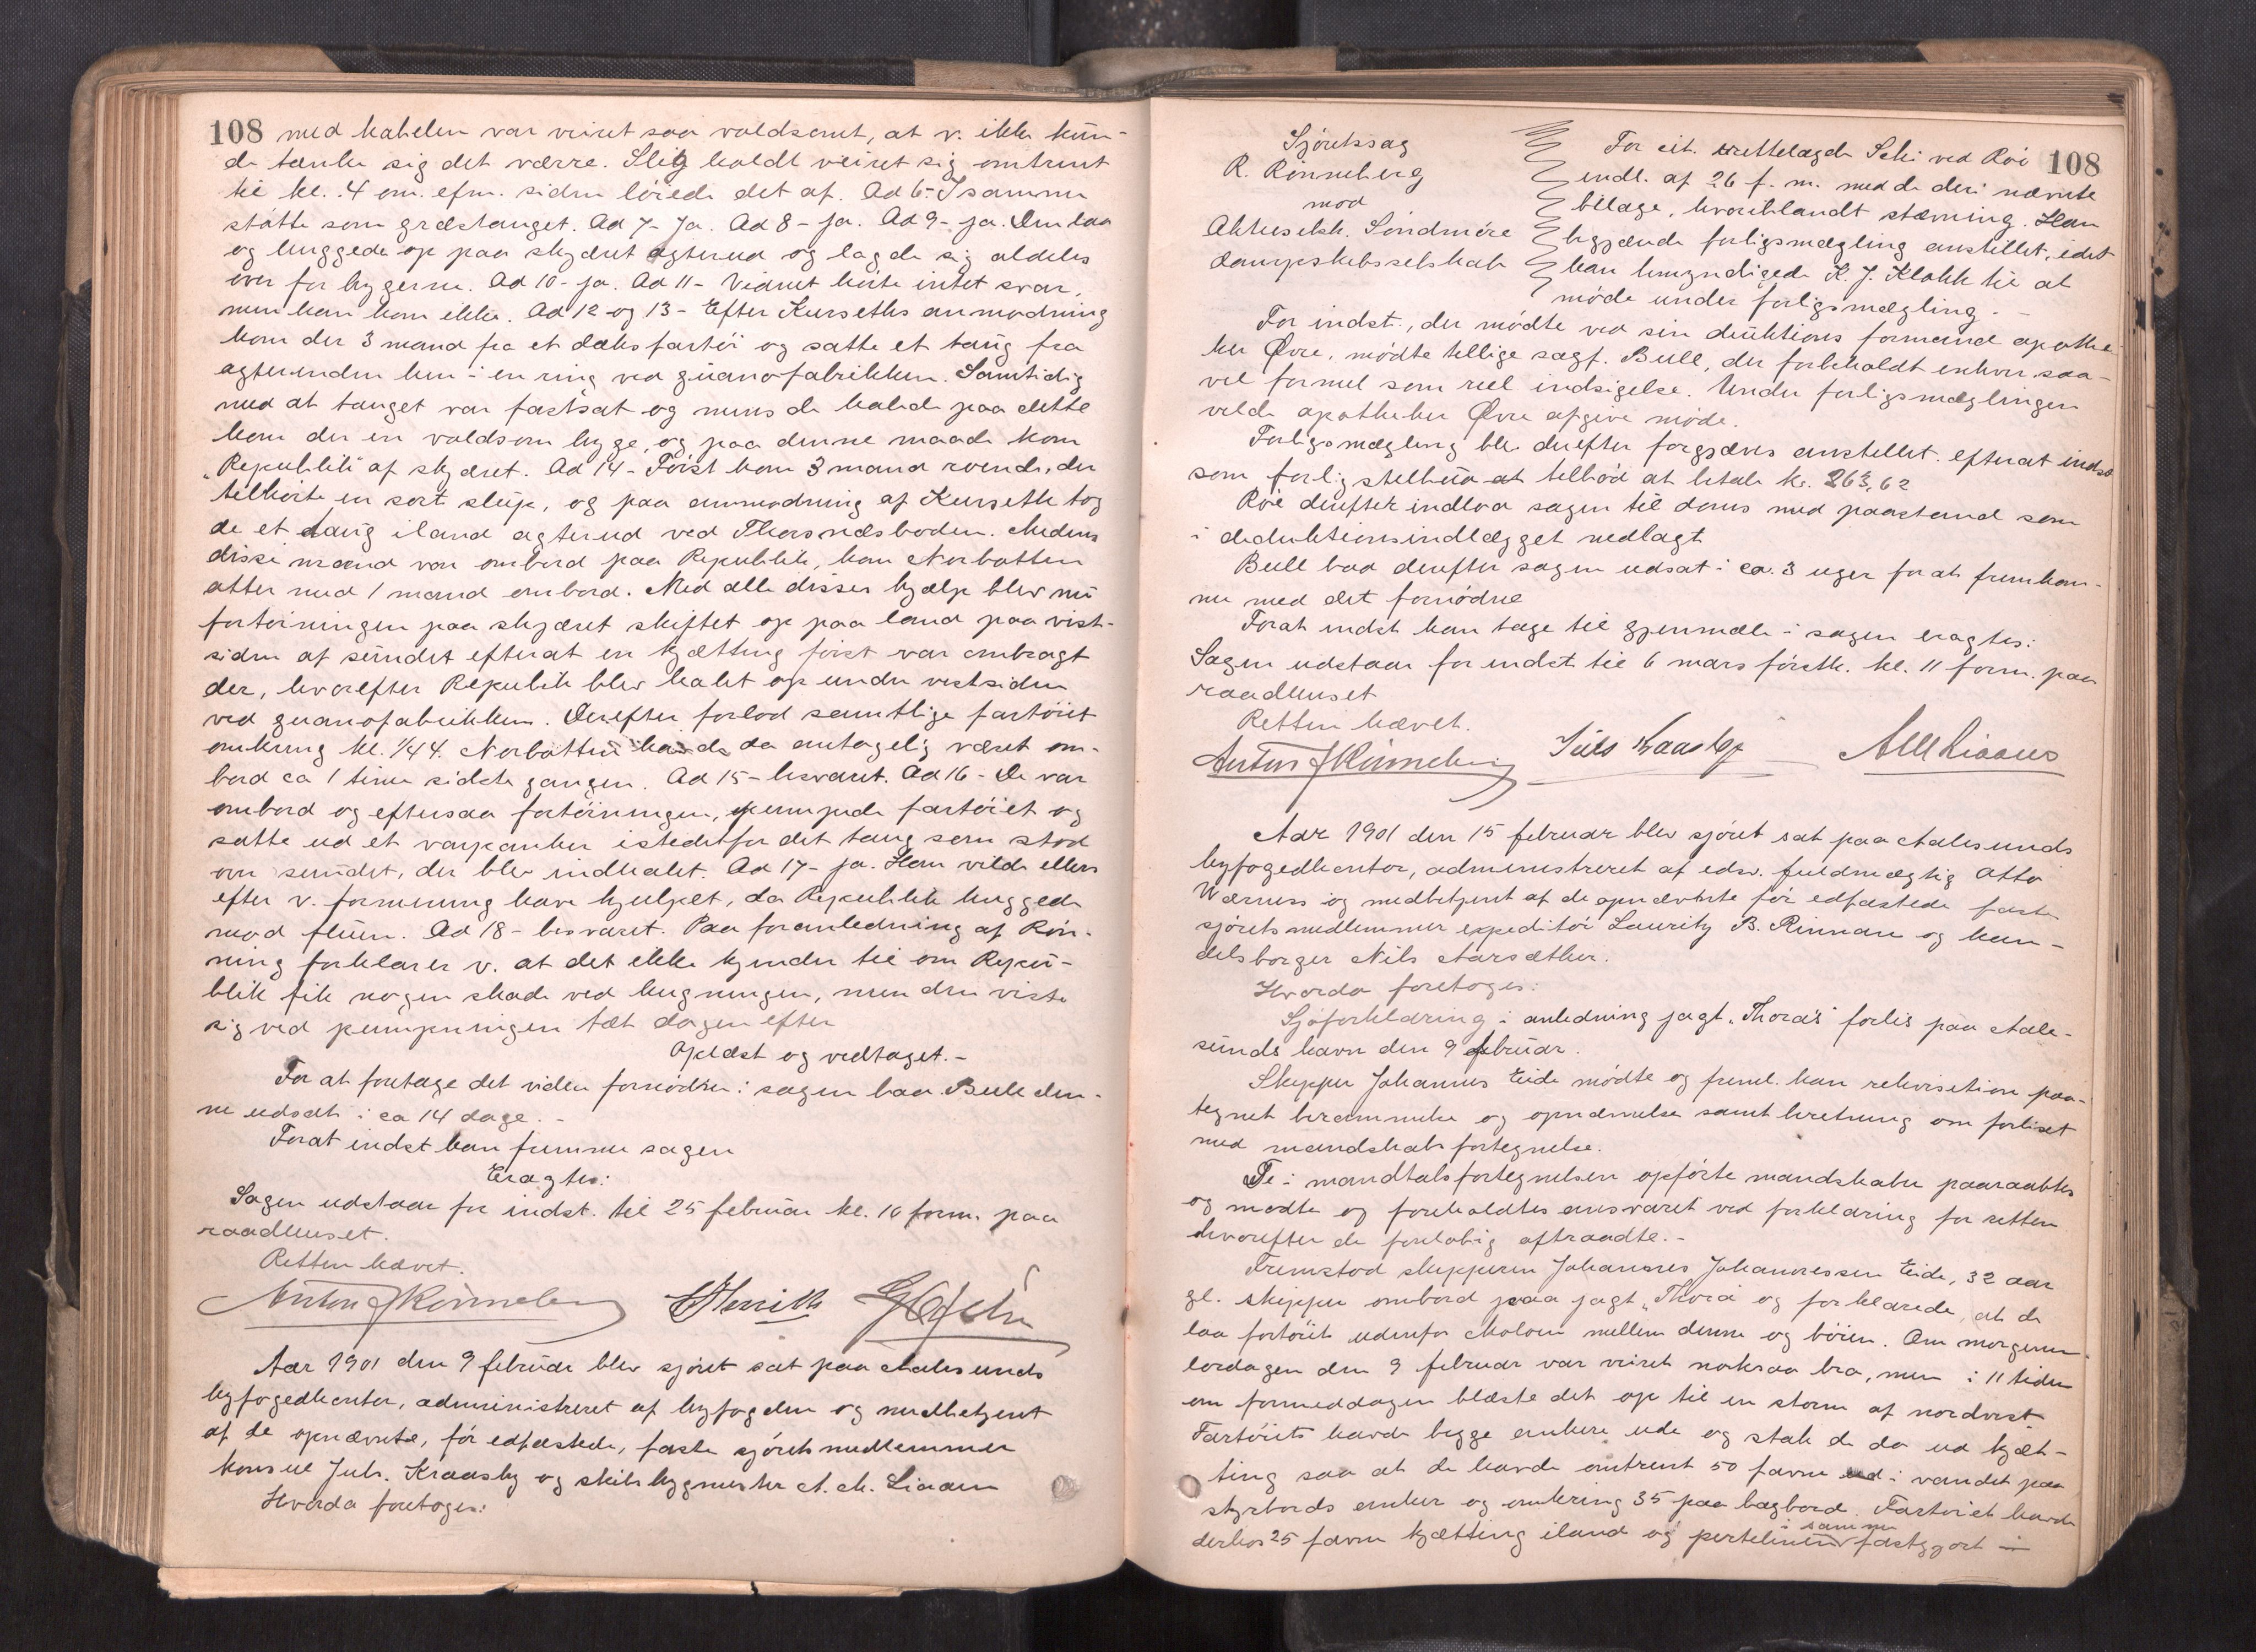 108 med kabelen var veiret saa voldsomt, at v. ikke kun-
de tænke sig det værre. Slig holdt veiret sig omtrent
til kl. 4 om efm. siden løiede det af. Ad 6- I samme
støtte som græstauget. Ad 7- Ja. Ad 8- ja. Ad 9- ja. Den laa
og huggede op paa skjæret agterud og lagde sig aldeles
over for byg­erne. Ad 10- ja. Ad 11- Vidnet hørte intet svar,
men han kom ikke. Ad 12 og 13- Efter Kurseths anmodning
kom der 3 mand fra et dæksfartøi og satte et taug fra
agterenden hen i en ring ved guanofabrikken. Samtidig
med at tauget var fastsat og mens de halede paa dette
kom der en voldsom bygge, og paa denne maade kom
"Republik" af skjæret. Ad 14- Først kom 3 mand roende, der
tilhørte en sort slup, og paa anmodning af Kurseth tog
de et taug iland agterud ved Thorsnæsboden. Medens
disse mænd var ombord paa Republik, kom Norbotten
atter med 1 mand ombord. Med alle disses hjælp blev nu
fortøiningen paa skjæret skiftet op paa land paa vest-
siden af sundet efterat en kjætting først var ombragt
der, hvorefter Republik blev halet op under vestsiden
ved guanofabrikken. Derefter forlod samtlige fartøiet
omkring kl. 1/4 4. Norbotten havde da antagelig været om-
bord ca 1 time sidste gangen. Ad 15- besvaret. Ad 16- De var
ombord og eftersaa fortøiningen, pumpede fartøiet og
satte ud et varpanker istedetfor det taug som stod
over sundet, der blev indhalet. Ad 17- ja. Han vilde ellers
efter v. formening have hjulpet, da Republik huggede
mod fluen. Ad 18- besvaret. Paa foranledning af Røn-
ning forklarer v. at det ikke kjender til om Repu-
blik fik nogen skade ved hugningen, men den viste
sig ved pumpningen tæt dagen efter
Oplæst og vedtaget.-
For at foretage det videre fornødne i sagen bad Bull den-
ne udsat i ca 14 dage.-
Forat indst kan fremme sagen
Eragtes:
Sagen udstaar for indst. til 25 februar kl. 10 form. paa
raadhuset.
Retten hævet.
Anton J Rønneberg
Aar 1901 den 9 februar blev sjøret sat paa Aalesunds
byfogedkontor, administreret af byfogden og medbetjent
af de opnævnte, før edfæstede, faste sjøretsmedlemmer
konsul Juls. Kraasby og skibsbygmester A. M. Liaaen
Hvorda foretoges:
108
Sjøretssag
R. Rønneberg
mod
Aktieselsk. Søndmøre
dampskibsselskab
For cit. irettelagde Schi ved Røe
indl. af 26 f. m. med de deri nævnte
bilage, hvoriblandt stævning. Han
begjærede forligsmægling anstillet, idet
han bemyndigede K. J. Klokk til at
møde under forligsmægling.-
For indst., der mødte ved sin direktions formand apothe-
ker Øvre, mødte tillige sagf. Bull, der forbeholdt enhver saa-
vel formel som reel indsigelse. Under forligsmæglingen
vilde apotheker Øvre afgive møde.
Forligsmægling blev derefter forgjæves anstillet efterat indst
som forligstilbud at tilbød at betale kr. 263,62
Røe derefter indlod sagen til doms med paastand som
i deduktionsindlægget nedlagt
Bull bad derefter sagen udsat i ca. 3 uger for at fremkom-
me med det fornødne
Forat indst kan tage til gjenmæle i sagen eragtes:
Sagen udstaar for indst til 6 mars førstk. kl. 11 form. paa
raadhuset
Retten hævet.
Anton J Rønneberg Juls Kraasby A M Liaaen
Aar 1901 den 15 februar blev sjøret sat paa Aalesunds
byfogedkontor, administreret af edsv. fuldmægtig Otto
Værnes og medbetjent af de opnævnte før edfæstede faste
sjøretsmedlemmer expeditør Lauritz B. Rinnan og han-
delsborger Nils Aarsæther.
Hvorda foretoges:
Sjøforklaring i anledning jagt "Thora's" forlis paa Aale-
sunds havn den 9 februar.
Skipper Johannes Eide mødte og freml. han rekvisition paa-
tegnet berammelse og opnævnelse samt beretning om forliset
med mandskabsfortegnelse.
De i mandtalsfortegnelsen opførte mandskaber paaraabtes
og mødte og foreholdtes ansvaret ved forklaring for retten
hvorefter de foreløbig aftraadte.-
Fremstod skipperen Johannes Johannessen Eide, 32 aar
gl. skipper ombord paa jagt "Thora" og forklarede, at de
laa fortøiet udenfor Moloen mellem denne og bøien. Om morgenen
lørdagen den 9 februar var veiret noksaa bra, men i 11 tiden
om formiddagen blæste det op til en storm af nordvest
Fartøiets havde begge ankere ude og stak de da ud kjæt-
ting saa at de havde omtrent 50 favne ud i vandet paa
styrbords anker og omkring 35 paa bagbord. Fartøiet havde
derhos 25 favne kjætting iland og pertelinen i samme fastgjort -